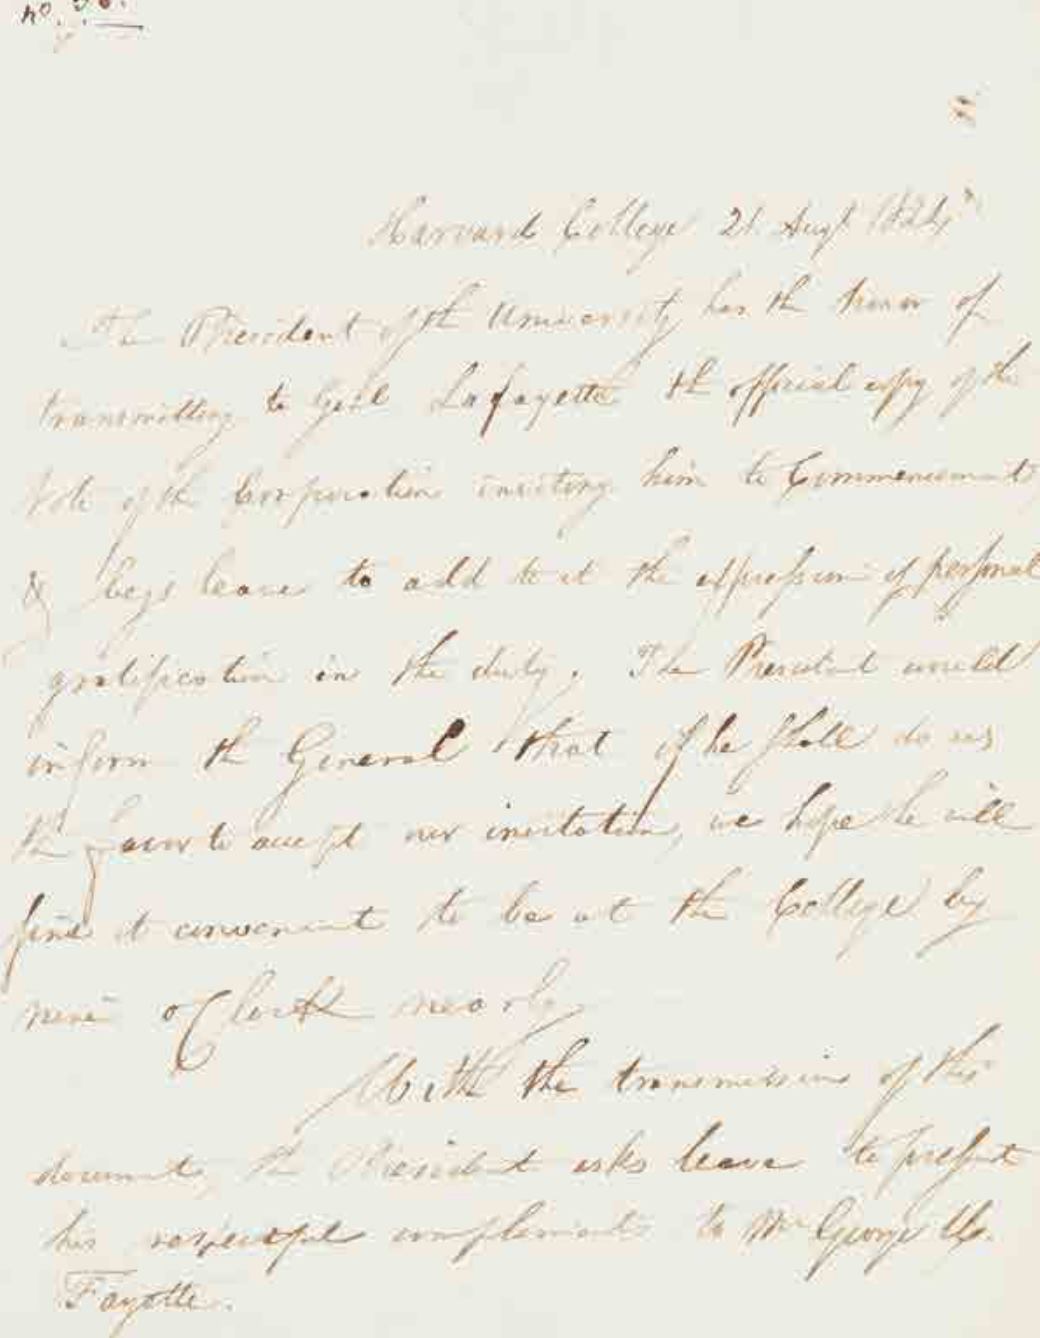 no. 36.
Harvard College 21 Augt 1824
The President of the University has the honor of
transmitting to Genl Lafayette the official copy of the
Vote of the Corporation inviting him to Commencement
& begs leave to add to it the expression of personal
gratification in the duty. The President would
inform the General that if he shall do us
the favor to accept our invitation, we hope he will
find it convenient to be at the College by
nine o'Clock nearly
With the transmission of this
document, the President asks leave to present
his respectful compliments to Mr George
Fayette.